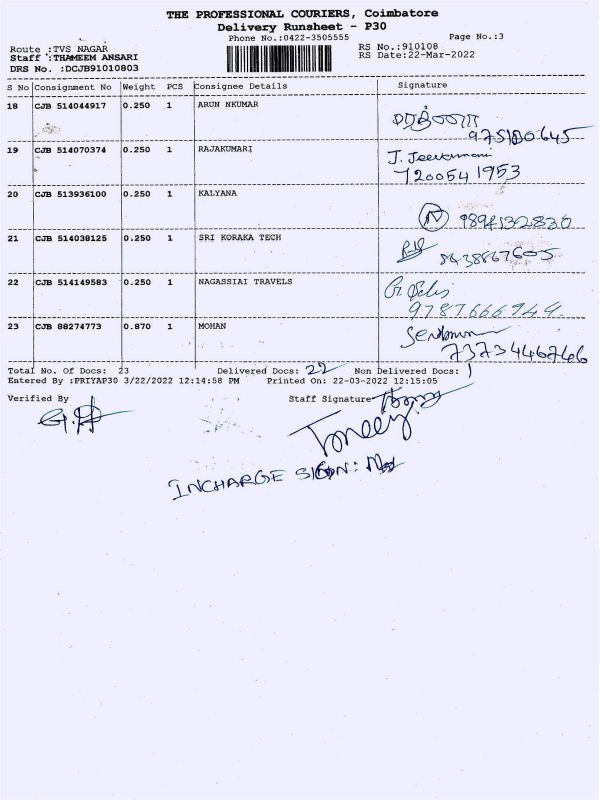 THE PROFESSIONAL COURIERS, Coimbatore
Delivery Runsheet - P30
Phone No.:0422-3505555
Page No.:3
Route :TVS NAGAR
RS No.:910108
Staff :THAMEEM ANSARI
RS Date:22-Mar-2022
DRS No. :DCJB91010803
S No Consignment No Weight PCS Consignee Details Signature
18 CJB 514044917 0.250 1 ARUN NKUMAR
19 CJB 514070374 0.250 1 RAJAKUMARI
7200541953
20 CJB 513936100 0.250 1 KALYANA
9894132820
21 CJB 514038125 0.250 1 SRI KORAKA TECH
8438867605
22 CJB 514149583 0.250 1 NAGASSIAI TRAVELS
9787666944
23 CJB 88274773 0.870 1 MOHAN
7373446746
Total No. Of Docs: 23 Delivered Docs: 22 Non Delivered Docs: 1
Entered By :PRIYAP30 3/22/2022 12:14:58 PM Printed On: 22-03-2022 12:15:05
Verified By Staff Signature
INCHARGE SIGN: